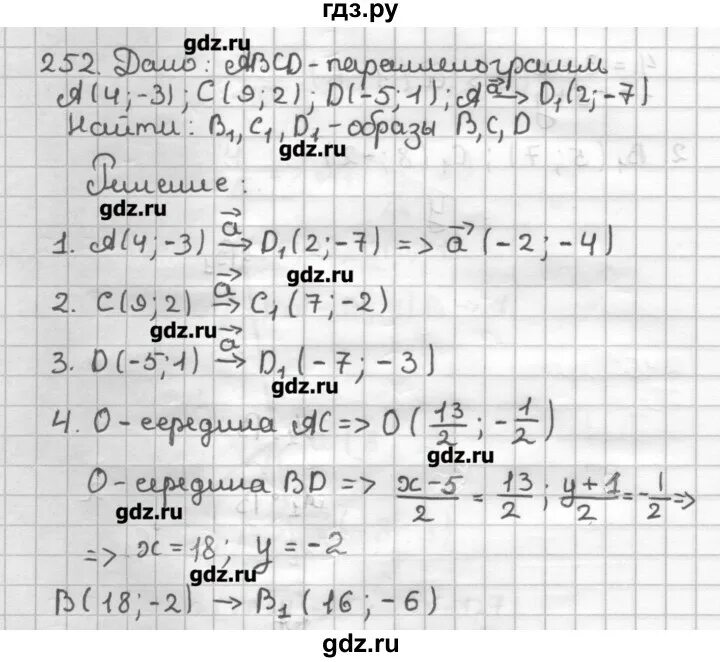 гдз.ру
gdz.ru
252. Дано: ABCD - параллелограмм
A(4;-3); C(9;2); D(-5;1); A →a⃗ D₁(2;-7)
Найти: B₁, C₁, D₁ - образы B, C, D
gdz.ru
Решение:
gdz.ru
1. A(4;-3) →a⃗ D₁(2;-7) => a⃗(-2;-4)
gdz.ru
2. C(9;2) →a⃗ C₁(7;-2)
gdz.ru
3. D(-5;1) →a⃗ D₁(-7;-3)
gdz.ru
4. O - середина AC => O(13/2; -1/2)
gdz.ru
O - середина BD => (x-5)/2 = 13/2; (y+1)/2 = -1/2 =>
gdz.ru
=> x = 18; y = -2
gdz.ru
B(18;-2) → B₁(16;-6)
gdz.ru